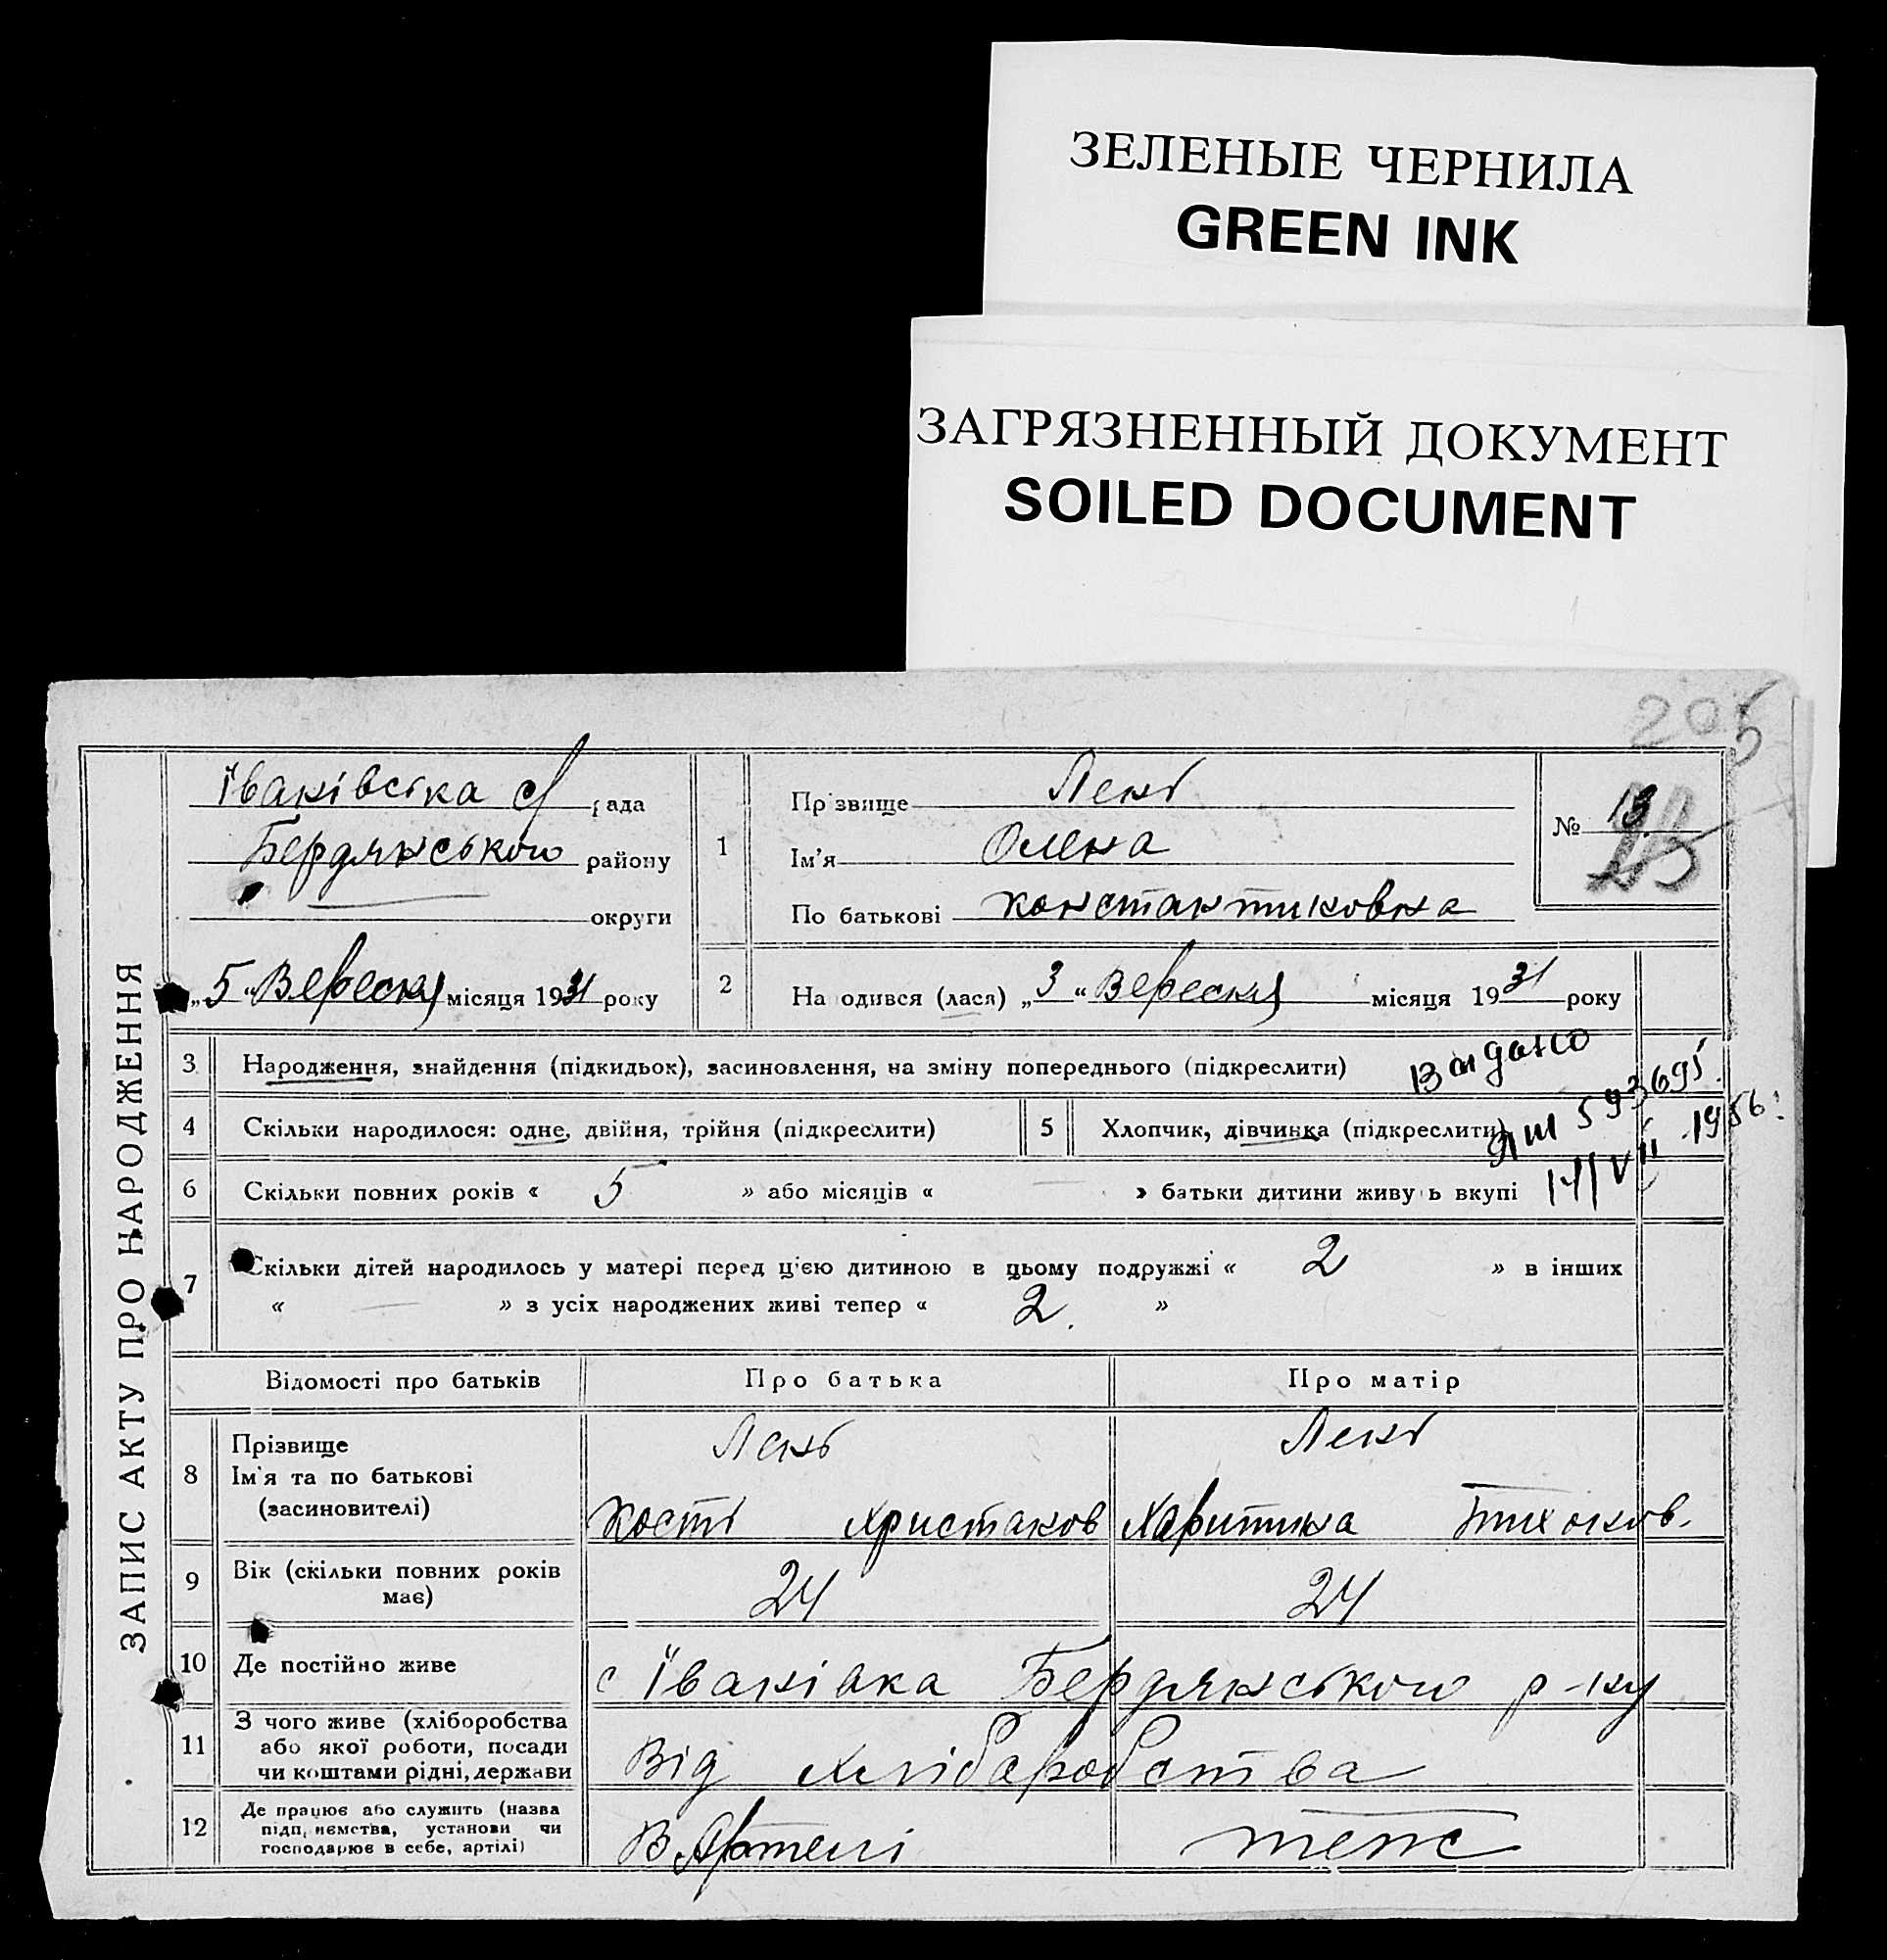 ЗЕЛЕНЫЕ ЧЕРНИЛА
GREEN INK
ЗАГРЯЗНЕННЫЙ ДОКУМЕНТ
SOILED DOCUMENT
205
ЗАПИС АКТУ ПРО НАРОДЖЕННЯ
Іванівська с/ рада
Бердянського району
округи
„5“ Вересня місяця 1931 року
1
Прізвище Лень
Ім'я Олена
По батькові Константиновна
№ 13
2 Народився (лася) „3“ Вересня місяця 1931 року
3 Народження, знайдення (підкидьок), засиновлення, на зміну попереднього (підкреслити)
Видано
593695
1956
4 Скільки народилося: одне, двійня, трійня (підкреслити)
5 Хлопчик, дівчинка (підкреслити)
6 Скільки повних років « 5 » або місяців « — » батьки дитини живуть вкупі
7 Скільки дітей народилось у матері перед ц'єю дитиною в цьому подружжі « 2 » в інших
« — » з усіх народжених живі тепер « 2. »
Відомості про батьків Про батька Про матір
8 Прізвище Лень Лень
Ім'я та по батькові
(засиновителі) Кость Христанов Харитина Тихонов.
9 Вік (скільки повних років
має) 24 24
10 Де постійно живе с Іванівка Бердянського р-ну
11 З чого живе (хліборобства
або якої роботи, посади
чи коштами рідні, держави Від хліборобства
12 Де працює або служить (назва
підприємства, установи чи
господарює в себе, артілі) В Артелі теж